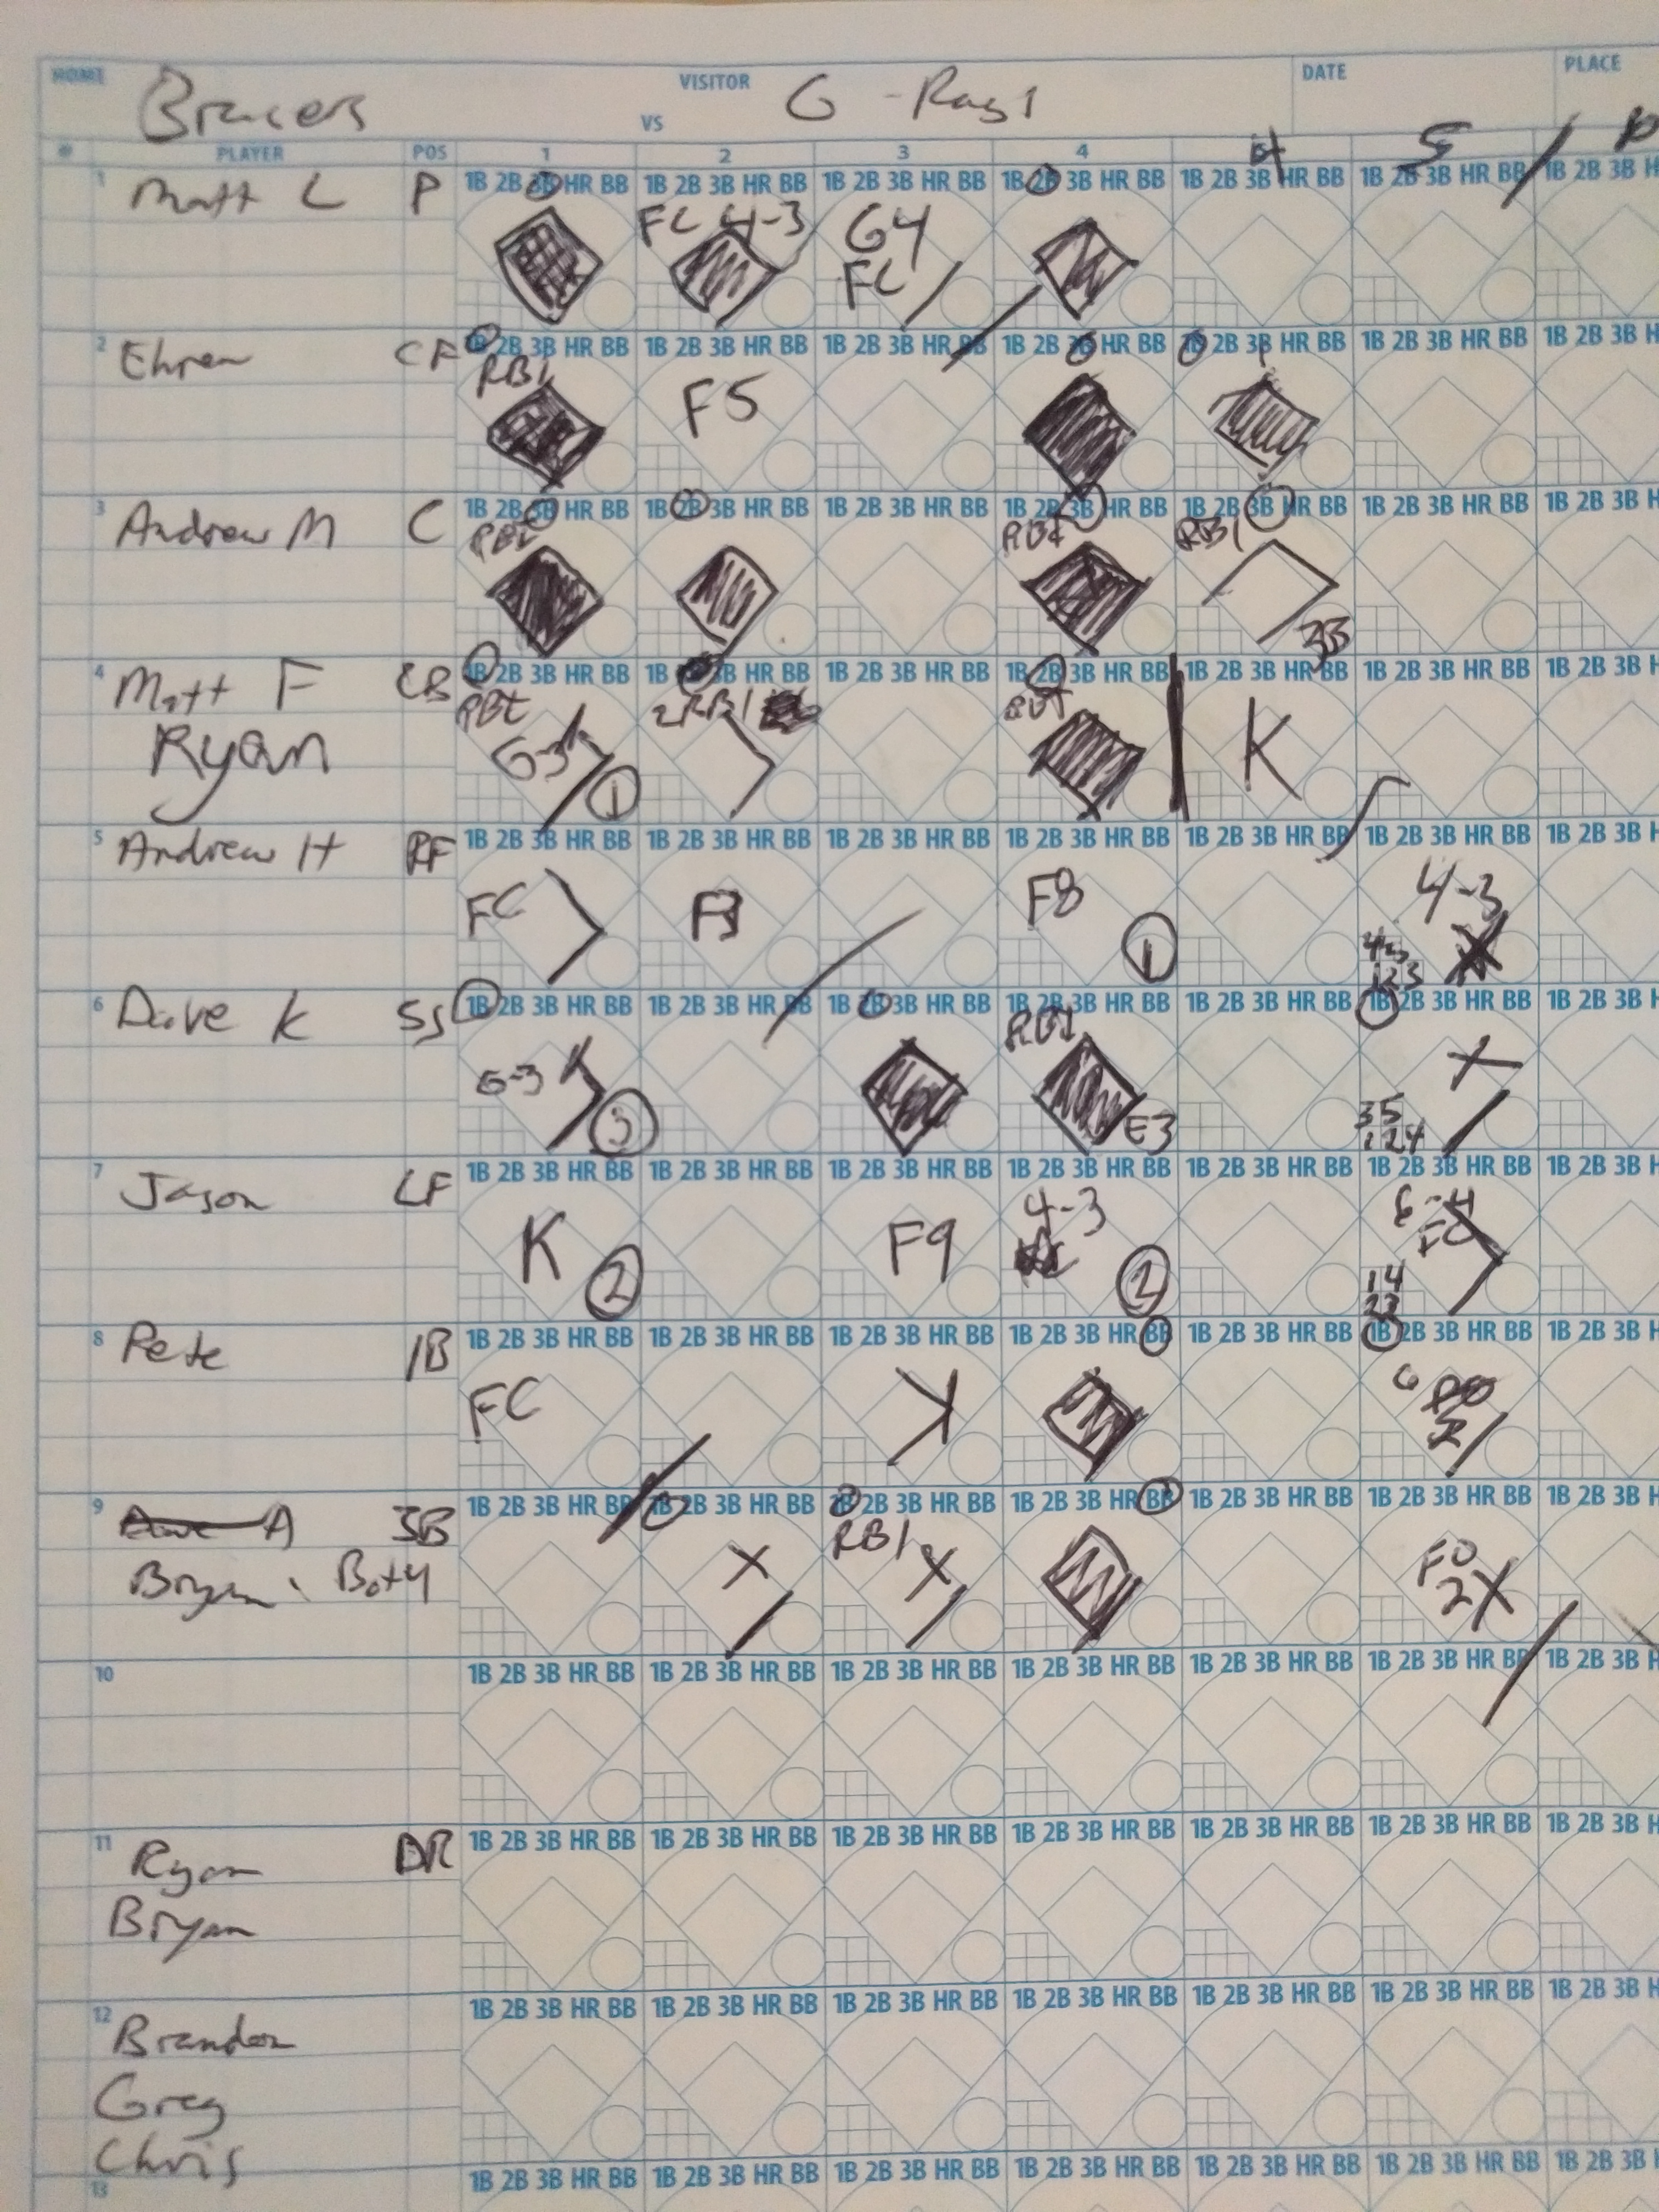 HOME Bracers VISITOR VS G-Rays 1 DATE PLACE
# PLAYER POS 1 2 3 4 4 5
1 Matt L P 1B 2B 3B HR BB 1B 2B 3B HR BB 1B 2B 3B HR BB 1B 2B 3B HR BB 1B 2B 3B HR BB 1B 2B 3B HR BB 1B 2B 3B H
FC 4-3 G4
FC
2 Ehren CF 1B 2B 3B HR BB 1B 2B 3B HR BB 1B 2B 3B HR BB 1B 2B 3B HR BB 1B 2B 3B HR BB 1B 2B 3B HR BB 1B 2B 3B H
RBI F5
3 Andrew M C 1B 2B 3B HR BB 1B 2B 3B HR BB 1B 2B 3B HR BB 1B 2B 3B HR BB 1B 2B 3B HR BB 1B 2B 3B HR BB 1B 2B 3B H
RBI RBI RBI
3B
4 Matt F CB 1B 2B 3B HR BB 1B 2B 3B HR BB 1B 2B 3B HR BB 1B 2B 3B HR BB 1B 2B 3B HR BB 1B 2B 3B HR BB 1B 2B 3B H
RBI 2RBI RBI
Ryan 6-3 1 K
5 Andrew H RF 1B 2B 3B HR BB 1B 2B 3B HR BB 1B 2B 3B HR BB 1B 2B 3B HR BB 1B 2B 3B HR BB 1B 2B 3B HR BB 1B 2B 3B H
FC F3 F8 1 4-3
123
6 Dave K SS 1B 2B 3B HR BB 1B 2B 3B HR BB 1B 2B 3B HR BB 1B 2B 3B HR BB 1B 2B 3B HR BB 1B 2B 3B HR BB 1B 2B 3B H
RBI
6-3 3 E3 35
124
7 Jason LF 1B 2B 3B HR BB 1B 2B 3B HR BB 1B 2B 3B HR BB 1B 2B 3B HR BB 1B 2B 3B HR BB 1B 2B 3B HR BB 1B 2B 3B H
K 2 F9 4-3 2 6-4
14
23
8 Pete 1B 1B 2B 3B HR BB 1B 2B 3B HR BB 1B 2B 3B HR BB 1B 2B 3B HR BB 1B 2B 3B HR BB 1B 2B 3B HR BB 1B 2B 3B H
FC
9 A 3B 1B 2B 3B HR BB 1B 2B 3B HR BB 1B 2B 3B HR BB 1B 2B 3B HR BB 1B 2B 3B HR BB 1B 2B 3B HR BB 1B 2B 3B H
Bryan RBI FO
2
10 1B 2B 3B HR BB 1B 2B 3B HR BB 1B 2B 3B HR BB 1B 2B 3B HR BB 1B 2B 3B HR BB 1B 2B 3B HR BB 1B 2B 3B H
11 Ryan DR 1B 2B 3B HR BB 1B 2B 3B HR BB 1B 2B 3B HR BB 1B 2B 3B HR BB 1B 2B 3B HR BB 1B 2B 3B HR BB 1B 2B 3B H
Bryan
12 Brandon 1B 2B 3B HR BB 1B 2B 3B HR BB 1B 2B 3B HR BB 1B 2B 3B HR BB 1B 2B 3B HR BB 1B 2B 3B HR BB 1B 2B 3B H
Greg
Chris
13 1B 2B 3B HR BB 1B 2B 3B HR BB 1B 2B 3B HR BB 1B 2B 3B HR BB 1B 2B 3B HR BB 1B 2B 3B HR BB 1B 2B 3B H